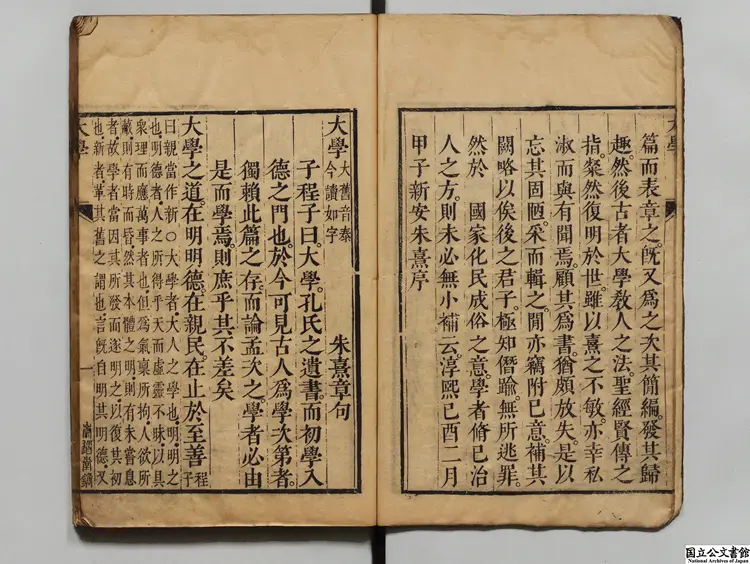 大學
篇而表章之。旣又爲之次其簡編。發其歸
趣。然後古者大學敎人之法。聖經賢傳之
指。粲然復明於世。雖以熹之不敏。亦幸私
淑而與有聞焉。顧其爲書猶頗放失。是以
忘其固陋。采而輯之。閒亦竊附己意。補其
闕略以俟後之君子極知僭踰。無所逃罪
然於 國家化民成俗之意學者脩己治
人之方。則未必無小補云。淳熙己酉二月
甲子新安朱熹序
大學 大舊音泰
今讀如字
朱熹章句
子程子曰。大學。孔氏之遺書而初學入
德之門也。於今可見古人爲學次第者。
獨賴此篇之存。而論孟次之。學者必由
是而學焉。則庶乎其不差矣
大學之道。在明明德。在親民。在止於至善 程子
曰親當作新○大學者。大人之學也。明。明之
也。明德者。人之所得乎天而虛靈不昧以具
衆理而應萬事者也。但爲氣稟所拘。人欲所
蔽。則有時而昏。然其本體之明則有未嘗息
者。故學者當因其所發而遂明之。以復其初
也。新者。革其舊之謂也。言旣自明其明德。又
大學
一
国立公文書館
National Archives of Japan